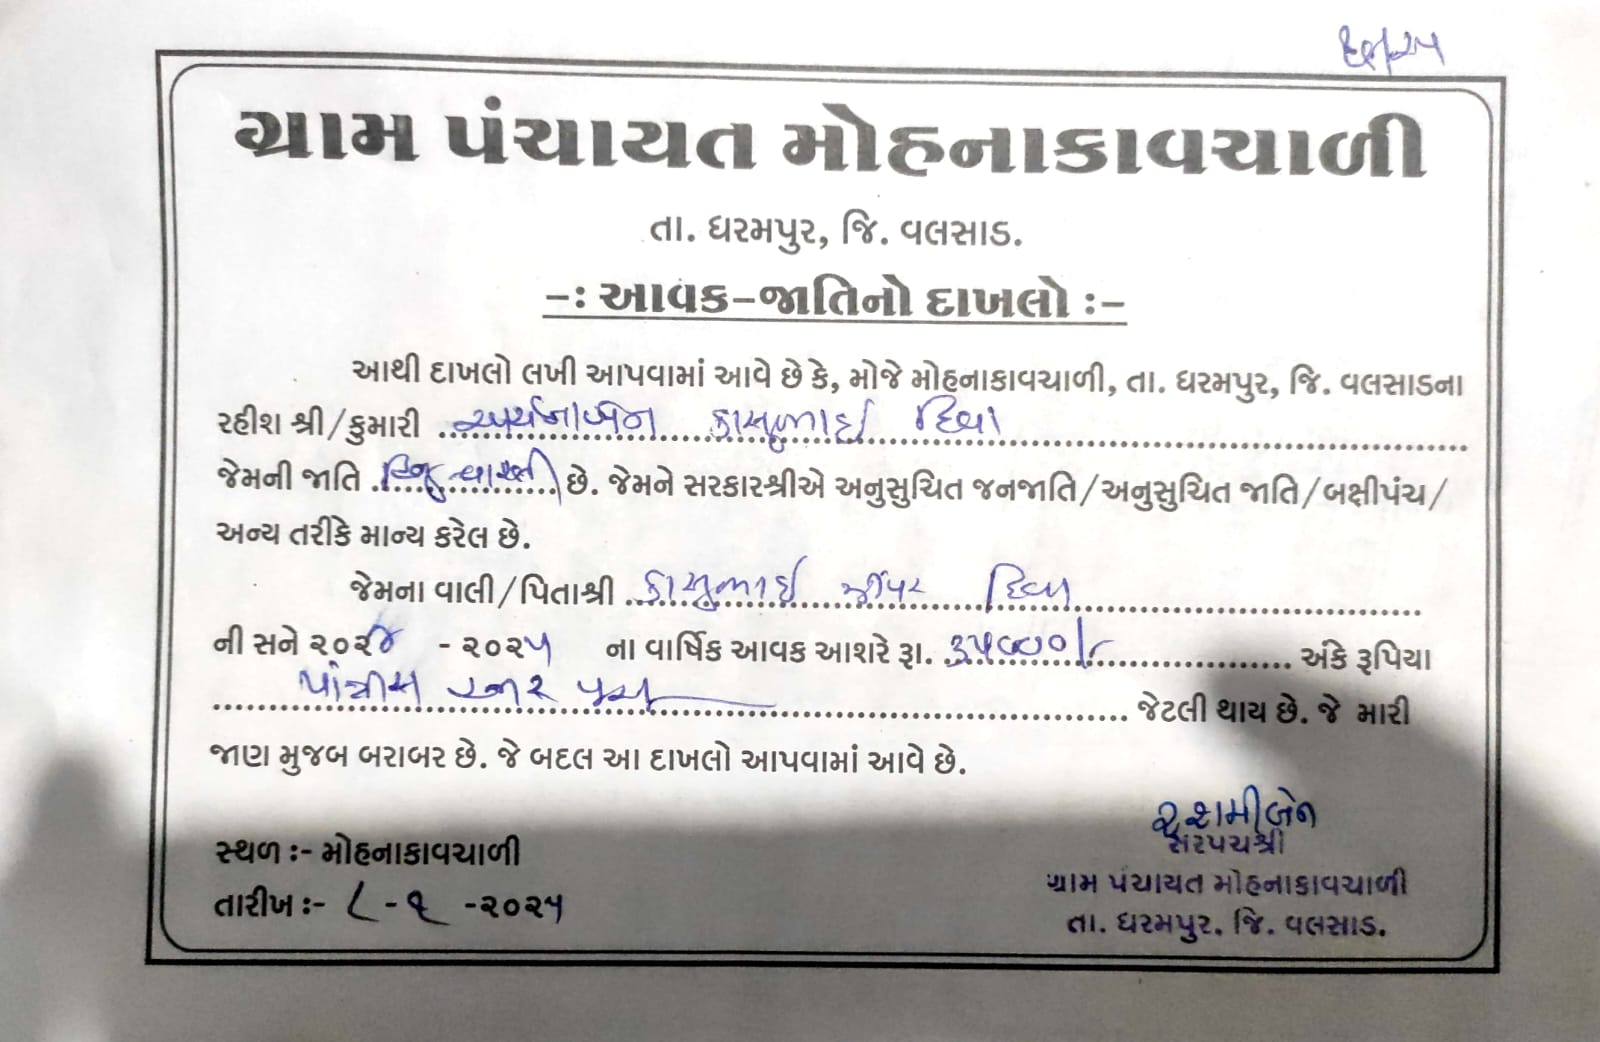 ગ્રામ પંચાયત મોહનાકાવચાળી
તા. ધરમપુર, જિ. વલસાડ.
-: આવક-જાતિનો દાખલો :-
આથી દાખલો લખી આપવામાં આવે છે કે, મોજે મોહનાકાવચાળી, તા. ધરમપુર, જિ. વલસાડના
રહીશ શ્રી/કુમારી અર્ચનાબેન કાસુભાઈ દિવા
જેમની જાતિ હિન્દુ વારલી છે. જેમને સરકારશ્રીએ અનુસુચિત જનજાતિ/અનુસુચિત જાતિ/બક્ષીપંચ/
અન્ય તરીકે માન્ય કરેલ છે.
જેમના વાલી/પિતાશ્રી કાસુભાઈ દિવા
ની સને ૨૦૨૪ - ૨૦૨૫ ના વાર્ષિક આવક આશરે રૂા. ૩૫૦૦૦/- અંકે રૂપિયા
પાંત્રીસ હજાર પુરા જેટલી થાય છે. જે મારી
જાણ મુજબ બરાબર છે. જે બદલ આ દાખલો આપવામાં આવે છે.
રશમીબેન
સ્થળ :- મોહનાકાવચાળી સરપંચશ્રી
તારીખ :- ૮-૧-૨૦૨૫ ગ્રામ પંચાયત મોહનાકાવચાળી
તા. ધરમપુર, જિ. વલસાડ.